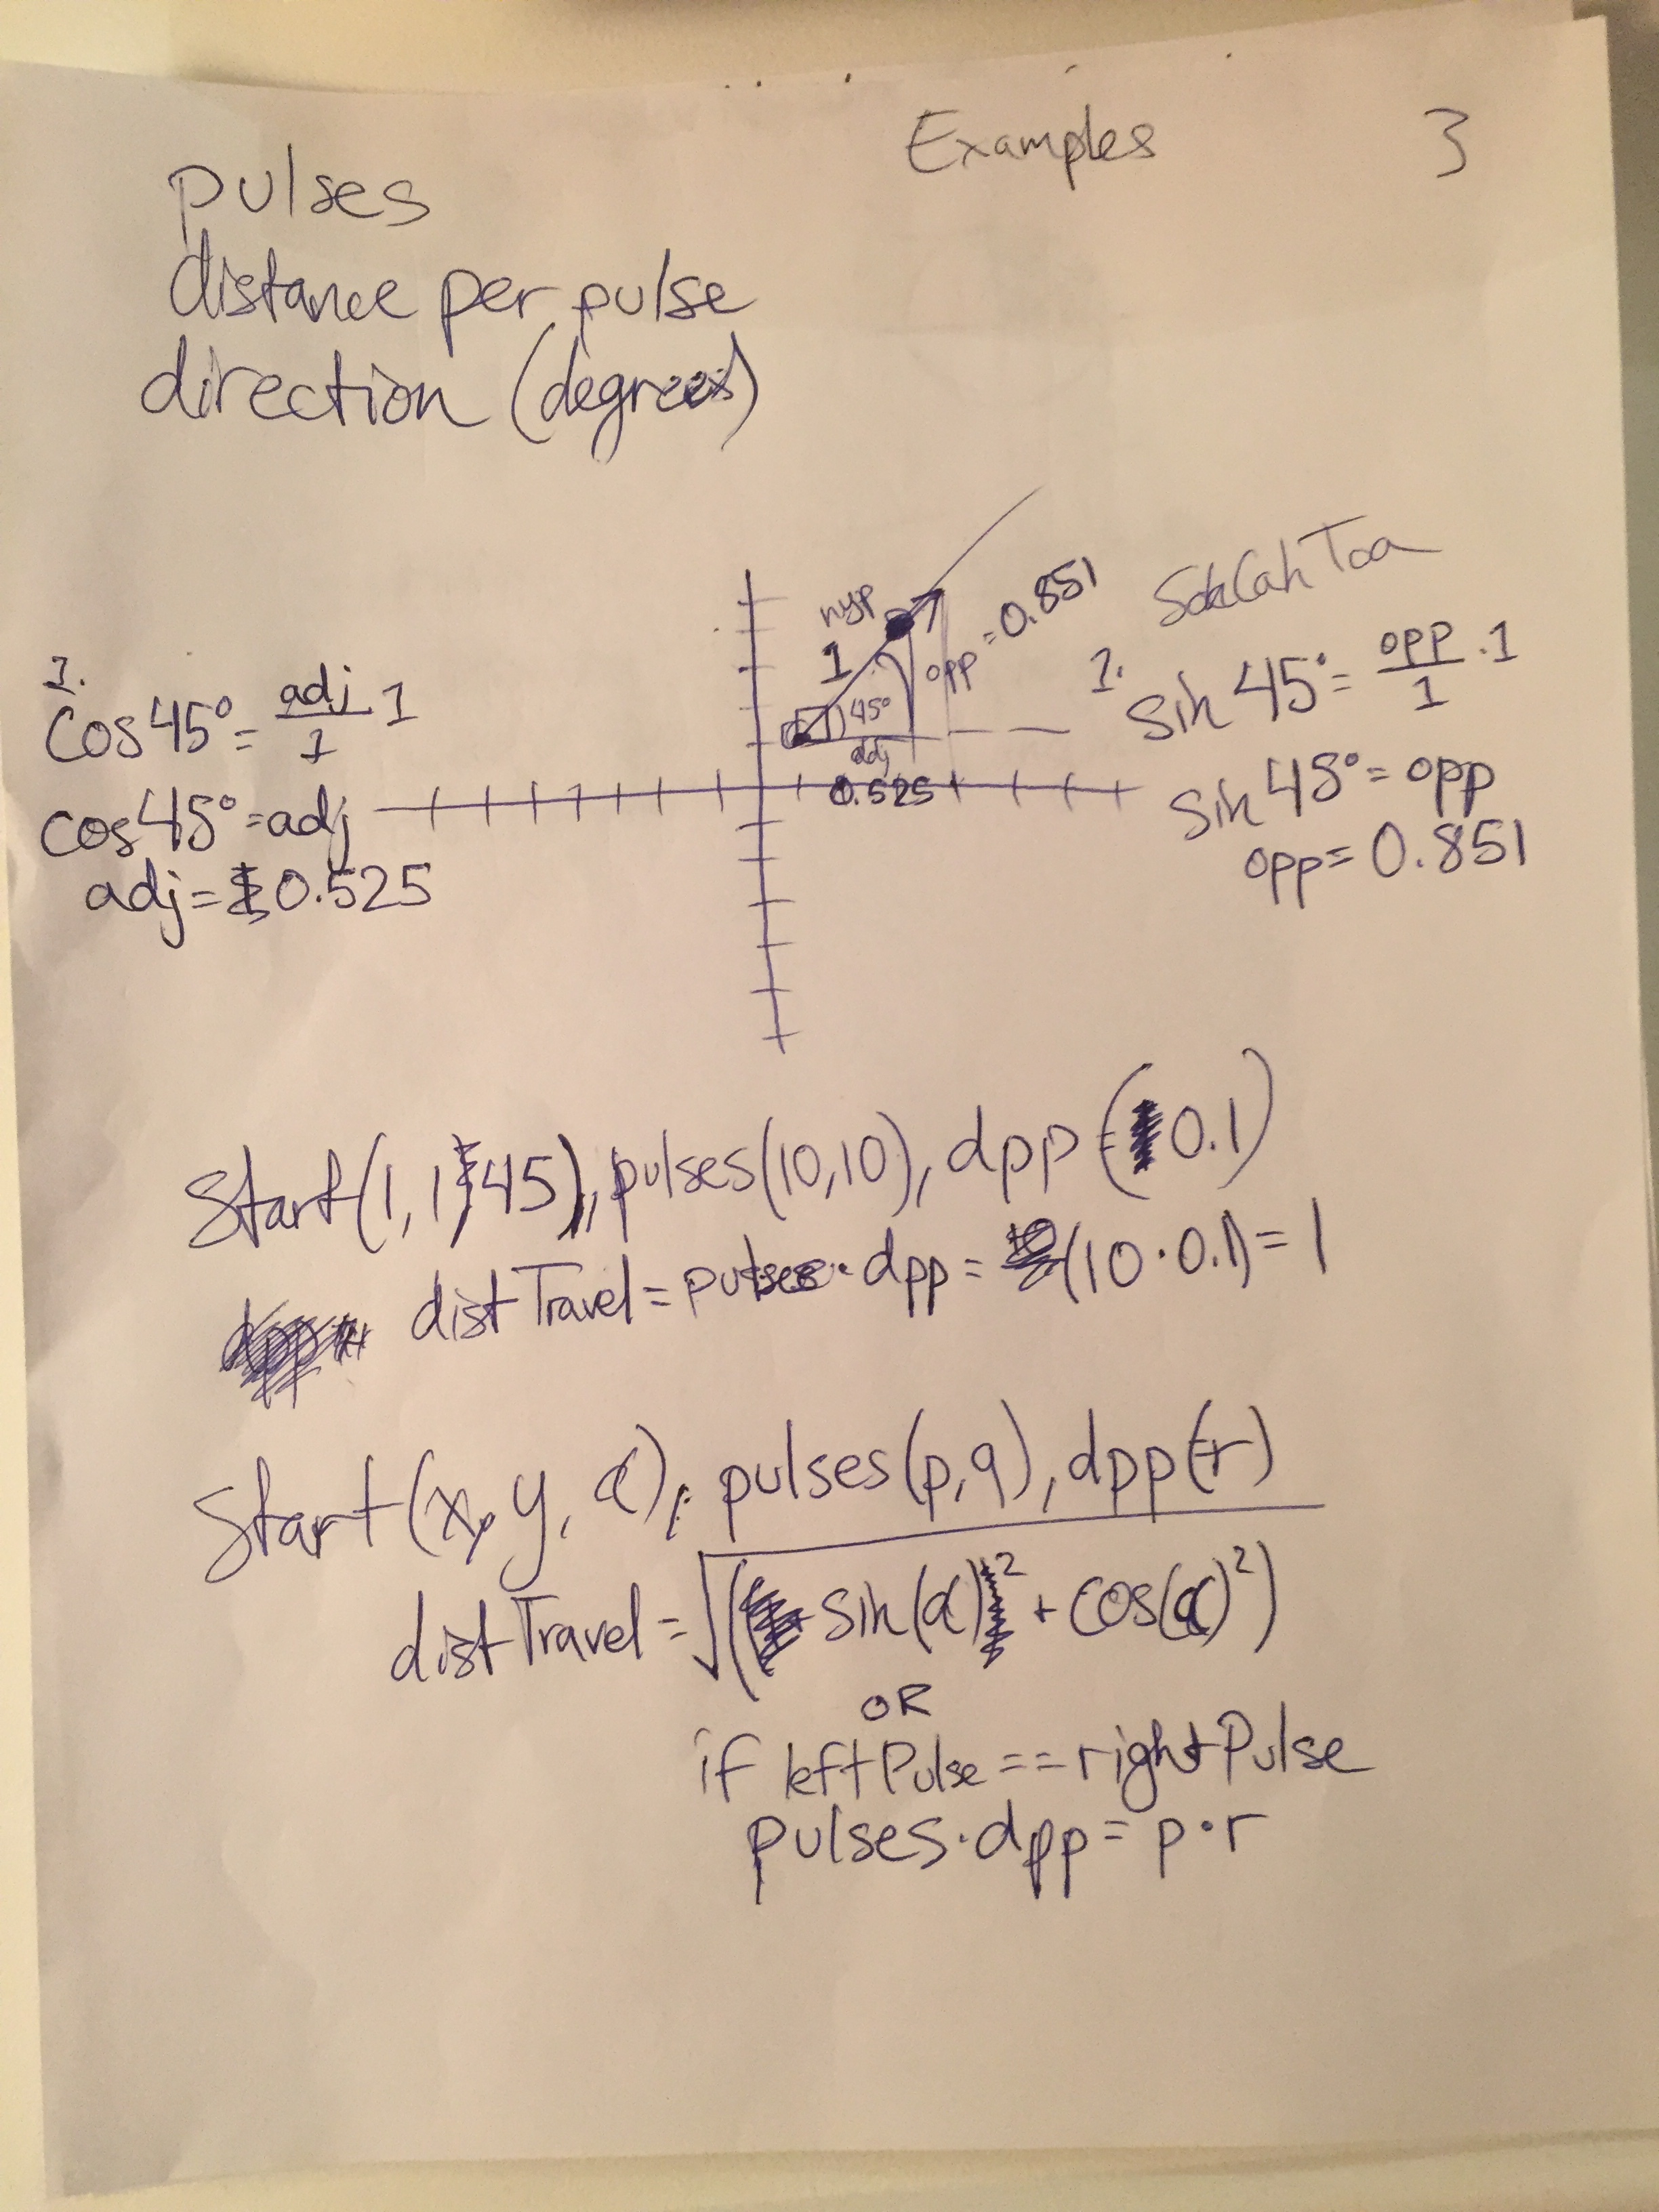 Examples 3
pulses
distane per pulse
direction (degrees)
SohCahToa
1. Cos 45° = adj/1 · 1
cos 45° = adj
adj = 0.525
hyp
1
45°
adj
0.525
opp = 0.851
1. sin 45° = opp/1 · 1
sin 45° = opp
opp = 0.851
Start(1, 1, 45), pulses(10,10), dpp(0.1)
distTravel = pulses · dpp = (10 · 0.1) = 1
Start(x, y, α), pulses(p,q), dpp(r)
distTravel = √(sin(α)² + cos(α)²)
OR
if leftPulse == rightPulse
pulses · dpp = p · r